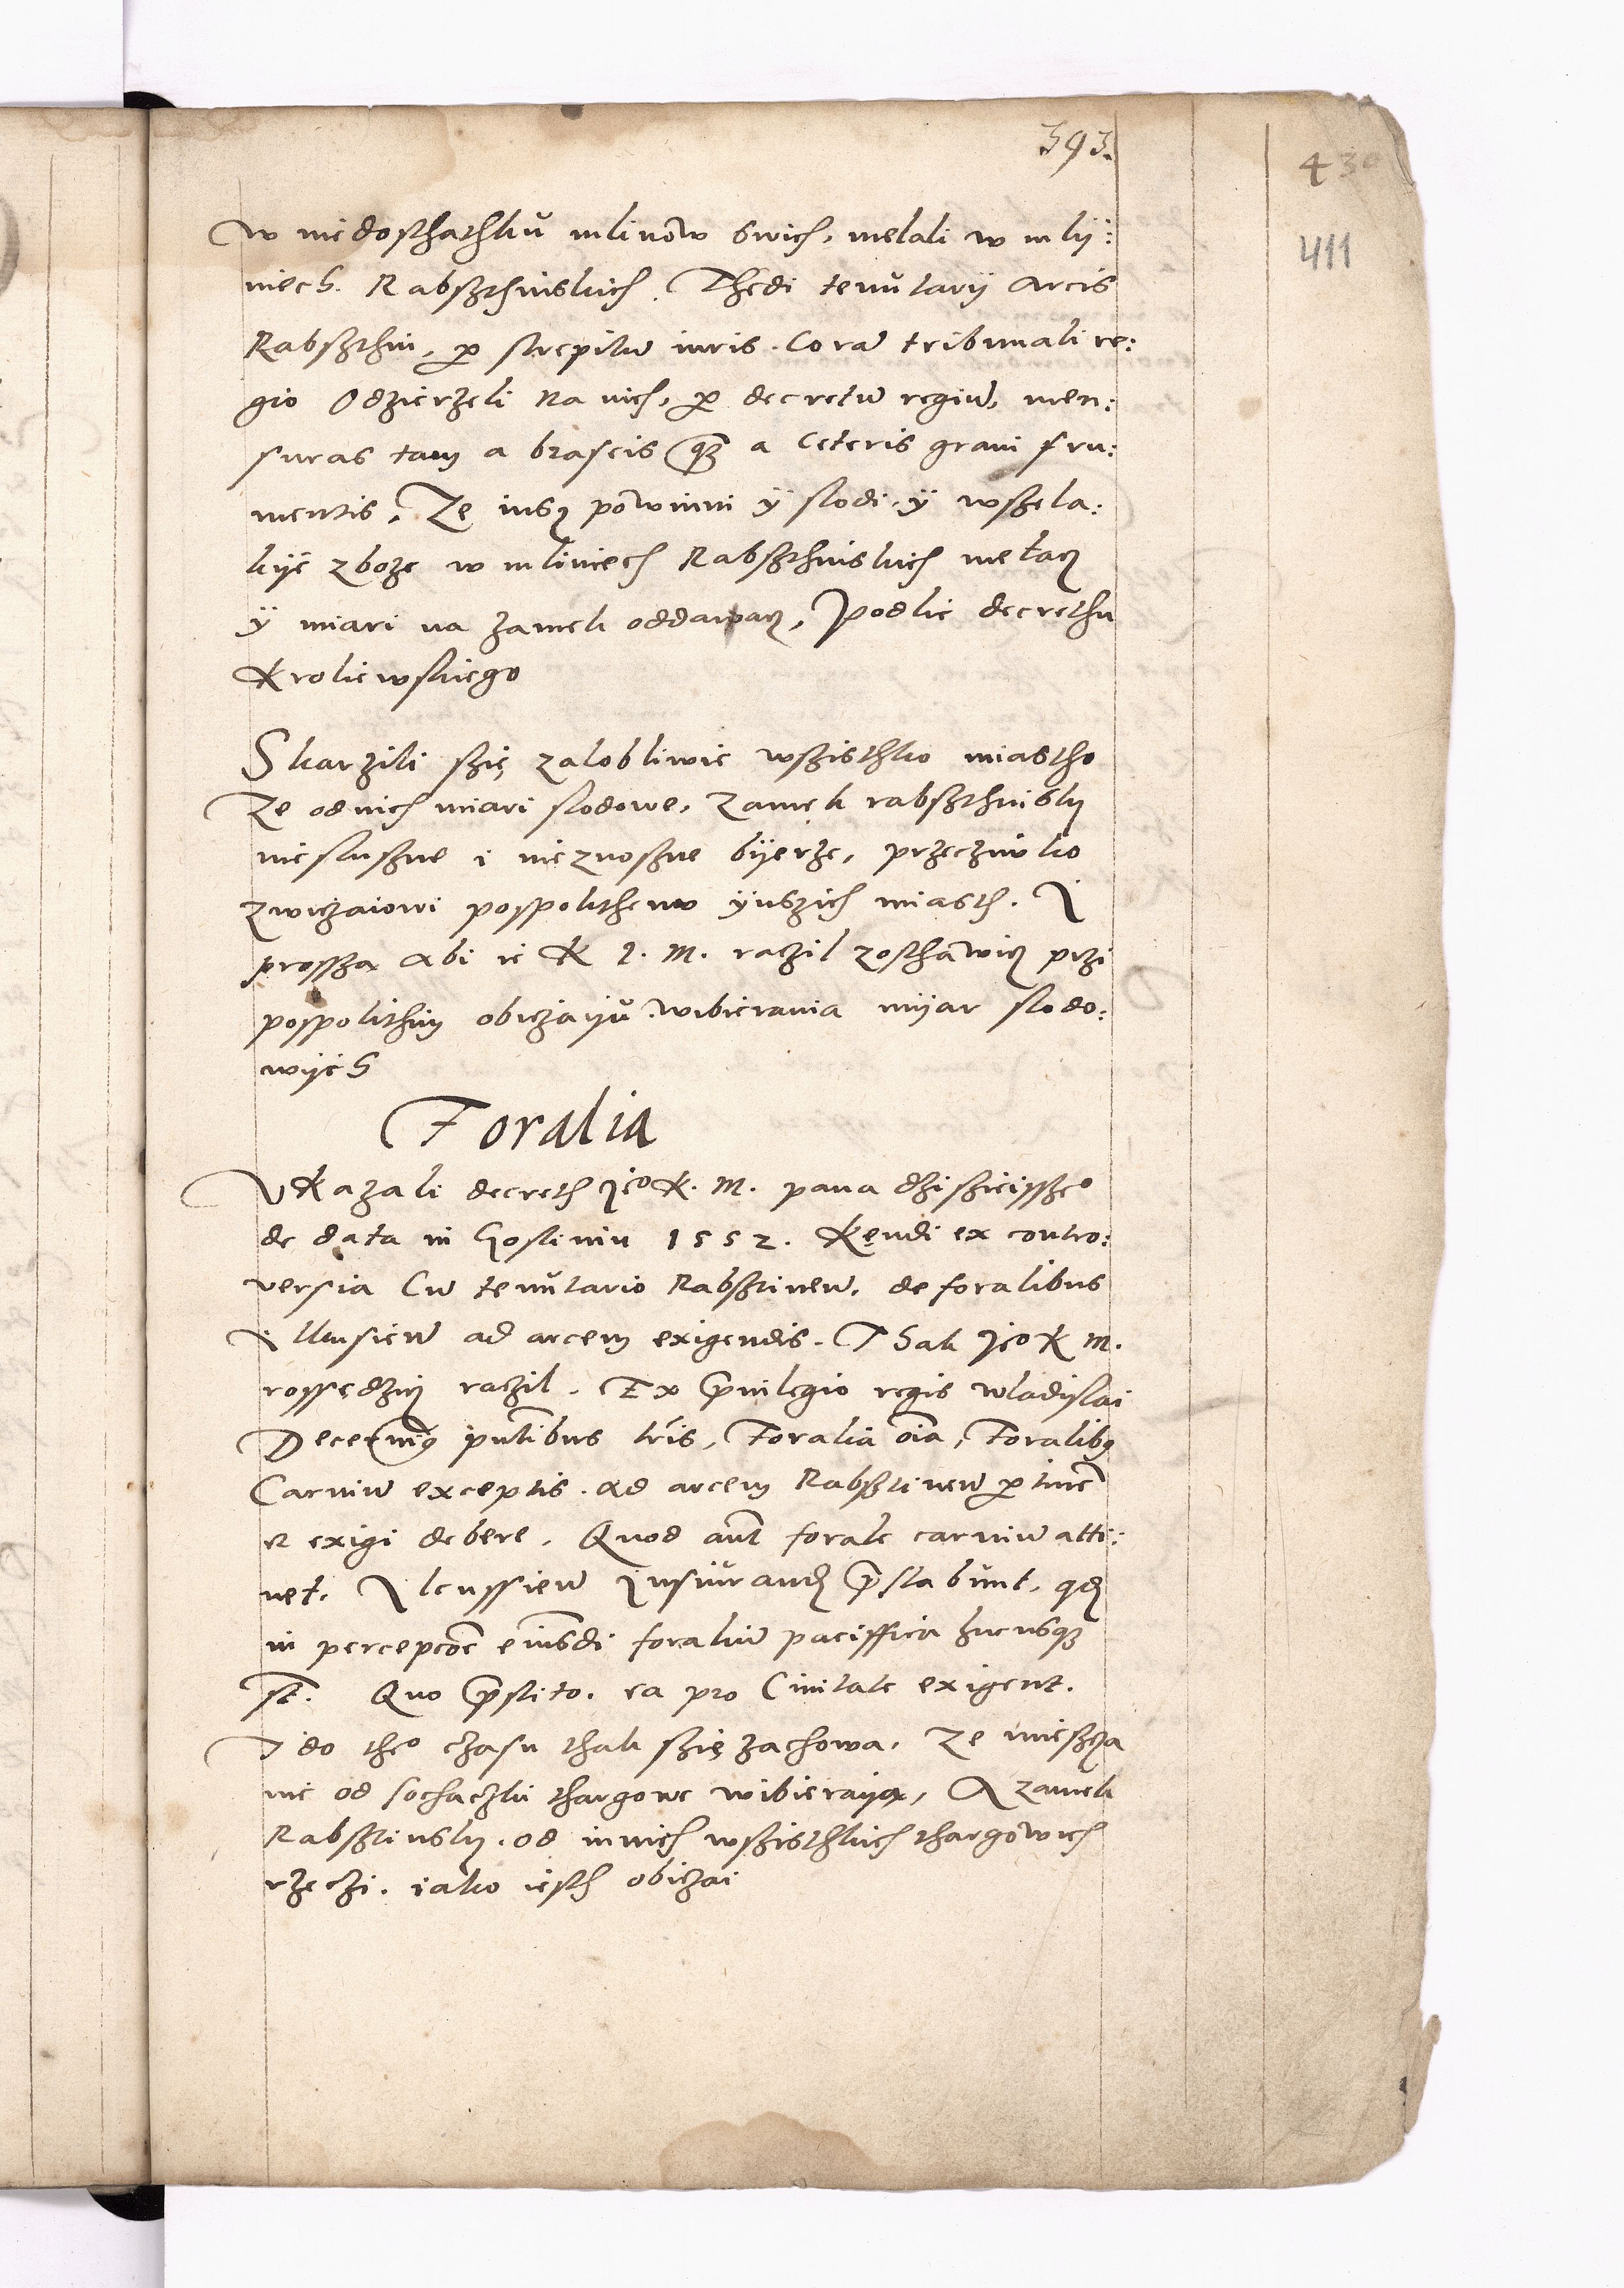 393.
430
411
w niedosthathku mlinow swich, melali w mly:
niech Rabsthinskich. Thedi tenutarii arcis
Rabsthin, per strepitum iuris Coram tribunali re:
gio Odzierzeli na nich, per decretum regium, men:
suras tam a braseis quam a ceteris grani fru:
mentis, Ze iusz powinni ÿ slodi ÿ wszela:
kije zboze w mliniech Rabsthinskich melacz
ÿ miari na zamek oddawacz, Podlie decrethu
Kroliewskiego
Skarzili szię zalobliwie wszisthko miastho
Ze od nich miari slodowe, zamek rabszthinsky
nieslusne i nieznosne bijerze, przecziwko
zwiczaiowi pospolithemu ÿnszich miasth. I
prossza abi ie K J. M. raczil zosthawicz przi
pospolithim obiczaiju wibierania mijar slodo:
wijch
Foralia
Vkazali decreth Jeo K. M. pana dzisziejsszeo
de data in Gostinin 1552. Kendi ex contro:
versia Cum tenutario Rabstinen, de foralibus
Ilkusien ad arcem exigendis. Thak Jeo K M.
rossędzicz raczil. Ex privilegio regis wladislai
Decernimus pntibus lris, Foralia oia, Foralibus
Carnium exceptis ad arcem Rabsztinen pertinere
et exigi debere. Quod aut forale carnium atti:
net. Ilcussien Jusiurand prestabunt, qd
in percepcoe eiusdi foralium paciffica hucusque
st. Quo prestito. ea pro Civitate exigent.
I do theo czasu thak szię zachowa, Ze miescza
nie od sochaczki thargowe wibieraija, A zamek
Rabstinsky od innich wszisthkich thargowich
rzeczi. iako iesth obiczai